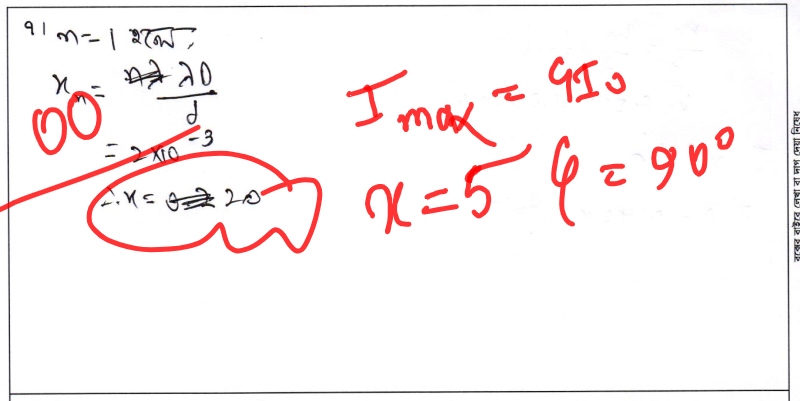 ৭। n = 1 হলে,
xₙ = λD/d
= 2×10⁻³
∴ x = 20
00
I max = 4I₀
x = 5 φ = 90°
বক্সের বাইরে লেখা বা দাগ দেয়া নিষেধ